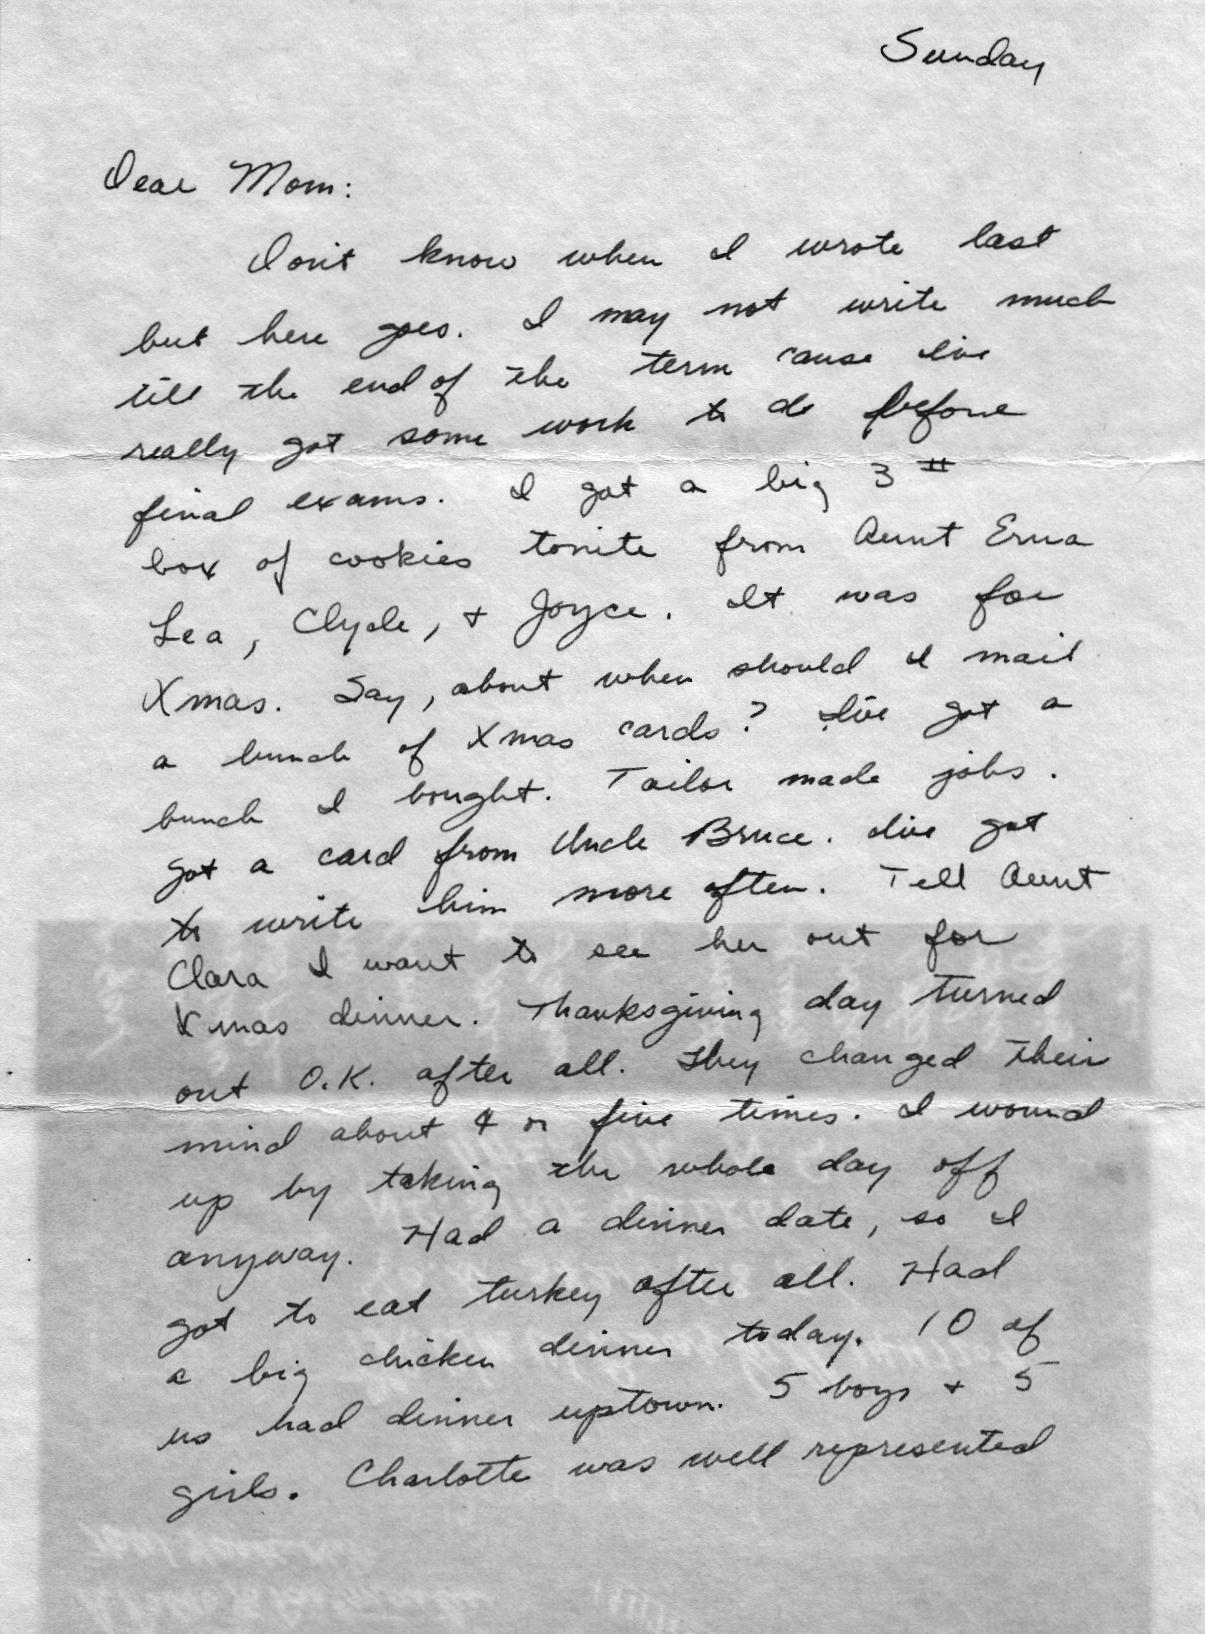 Sunday
Dear Mom:
Don't know when I wrote last
but here goes. I may not write much
till the end of the term cause I've
really got some work to do before
final exams. I got a big 3 #
box of cookies tonite from Aunt Erna
Lea, Clyde, + Joyce. It was for
Xmas. Say, about when should I mail
a bunch of Xmas cards? I've got a
bunch I bought. Tailor made jobs.
Got a card from Uncle Bruce. I've got
to write him more often. Tell Aunt
Clara I want to see her out for
Xmas dinner. Thanksgiving day turned
out O.K. after all. They changed their
mind about 4 or five times. I wound
up by taking the whole day off
anyway. Had a dinner date, so I
got to eat turkey after all. Had
a big chicken dinner today. 10 of
us had dinner uptown. 5 boys + 5
girls. Charlotte was well represented